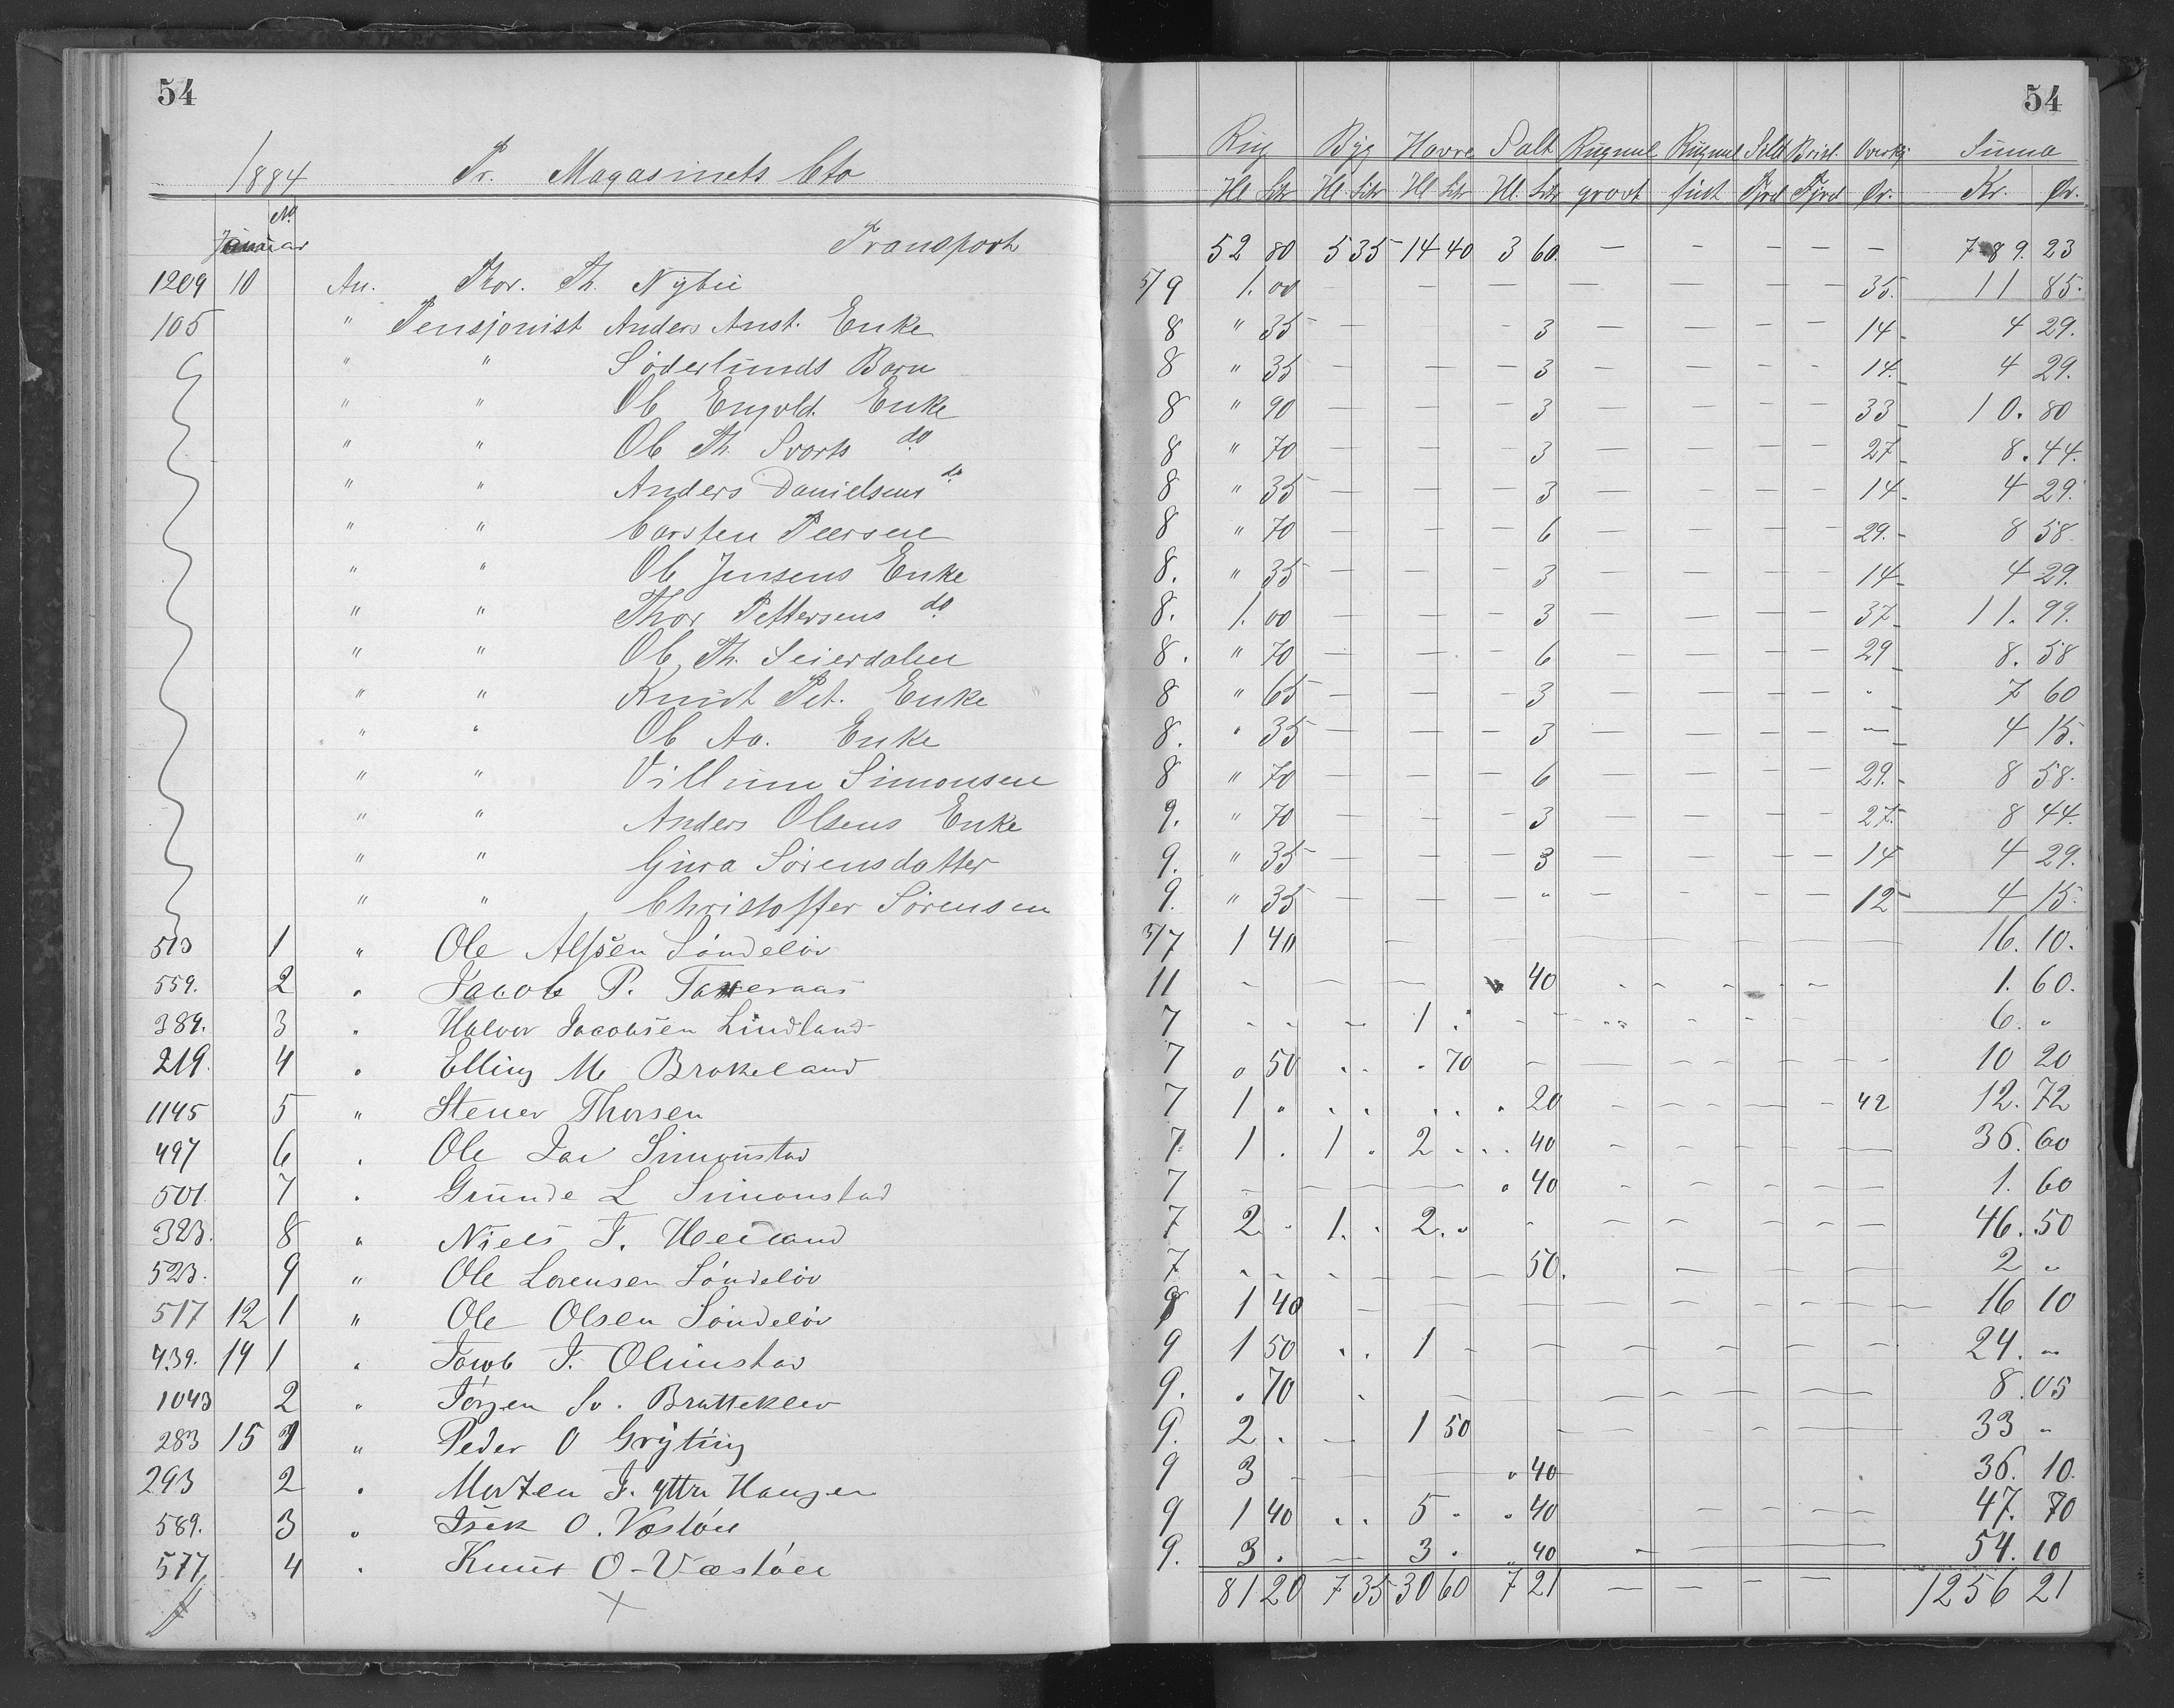 54 54
1884 Pr. Magasinets Cto Rug Byg Havre Salt Rugmel Rugmel Sild Brisl. Overkj Suma
Hl Litr Hl. Litr Hl Litr Hl. Litr grovt fint Fjrd Fjrd Ør. Kr. Ør.
No.
Januar Transport 52 80 5 35 14 40 3 60. — — — — — 789. 23
1209 10 An. Thor. Th. Nybu 5/9 1. 00 — — — — — — — 35. 11 85.
105 " Pensjonist Anders Anst. Enke 8 " 35 — — 3 — — — — 14 4 29.
" " Söderlunds Barn 8 " 35 — — — 3 — — — — 14. 4 29.
" " Ob Engvld. Enke 8 " 90 — — — 3 — — — — 33 10. 80
" " Ob Th. Svarts do 8 " 70 — — — 3 — — — — 27 8. 44.
" " Anders Danielsens do 8 " 35 — — — 3 — — — — 14 4 29.
" " Carsten Peersen 8 " 70 — — — 6 — — — — 29. 8 58
" " Ob Jensens Enke 8. " 35 — — — 3 — — — — 14 4 29.
" " Thor Pettersens do. 8. 1. 00 — — — 3 — — — — 37 11. 99.
" " Ob. Th. Seierdalen 8. " 70 — — — 6 — — — — 29 8. 58
" " Knudt Pet. Enke 8 " 65 — — — 3 — — — — " 7 60
" " Ob Aa. Enke 8. " 35 — — — 3 — — — — — 4 15.
" " Villum Simonsen 8 " 70 — — — 6 — — — — 29. 8 58.
" " Anders Olsens Enke 9. " 70 — — — 3 — — — — 27. 8 44.
" " Gura Sörensdatter 9. " 35 — — — 3 — — — — 14 4 29.
" " Christoffer Sörensen 9. " 35 — — — " — — — — 12 4 15.
513 1 " Ole Alfsen Söndeløv 3/7 1 40 — — — — — — — 16. 10.
559. 2 " Jacob P. 11 — — — 40 — — — — 1. 60.
389. 3 " Halvor Jacobsen Lindland 7 — — — 1 . — — — — 6. "
219. 4 " Elling M Brokeland 7 " 50 . . . 70 — — — — — 10 20
1145 5 " Stener Thorsen 7 1 " . . . . . 20 — — — — 42 12. 72
497 6 " Ole Jac Simonstad 7. 1 . 1 . 2 . . . 40 — — — — — 36. 60
501 7 " Grunde L Simonstad 7 — — — — . 40 — — — — — 1. 60
323. 8 " Niels T. Heiland 7 2 . 1. . 2. . — — — — — — 46. 50
523. 9 " Ole Lorensen Söndeløv 7 — — — — — 50. — — — — 2 "
517 12 1 " Ole Olsen Söndeløv 9 1 40 — — — — — — — — 16 10
439. 14 1 " Jacob T. Olimstad 9 1 50 . . 1 — — — — — — 24. "
1043 2 " Jörgen Sv. Bratteklev 9. . 70 . — — — — — — — 8. 05
283 15 1 " Peder O Gryting 9. 2 . — 1 50 — — — — — 33 "
293 2 " Morten J. ytre Haugen 9 3 — — — " 40 . 36. 10.
589. 3 " Isak O. Vestöll 9 1 40 . . 5 . . 40 — — — — 47. 70
577 4 " Knut O-Væstöll 9. 3 . — 3 . " 40 — — 54. 10
81 20 7 35 30 60 7 21 — — — — 1256 21